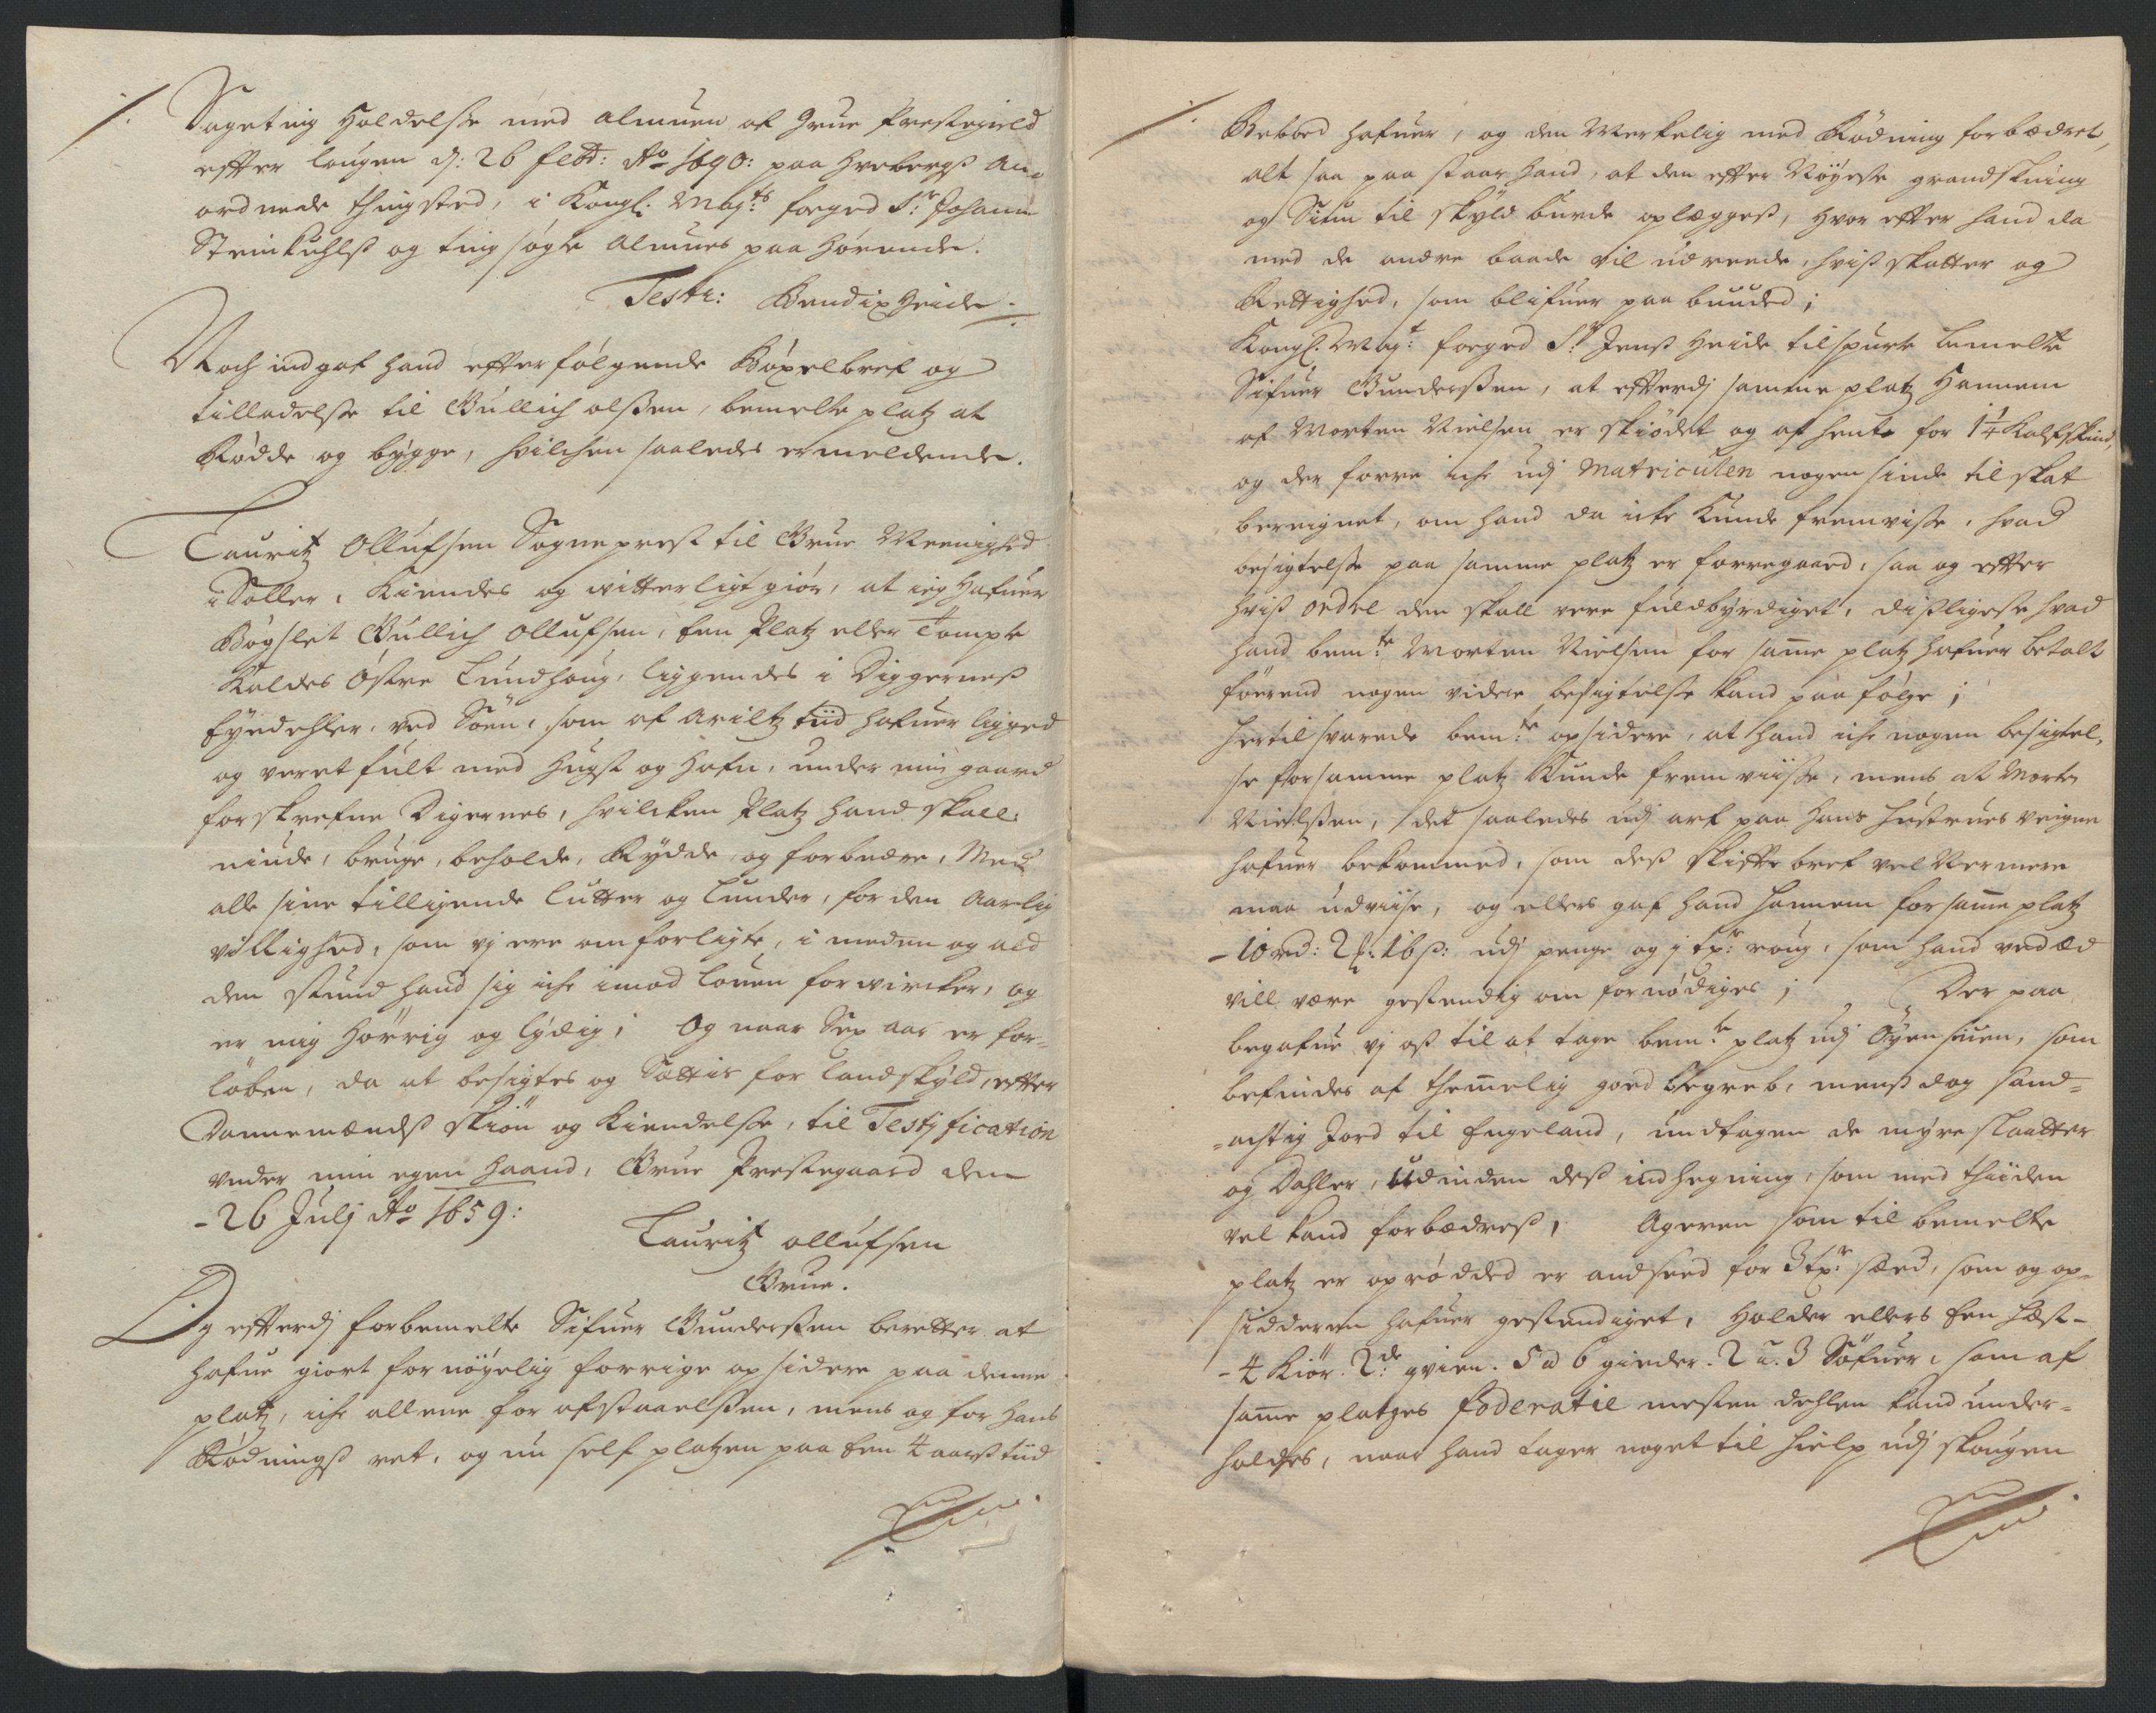 Sageting Holdelsse med almuen af Grue Prestegield
effter lougen d: 26 febr: Ao 1690: paa Hrebergs an-
ordnede thingsted, i Kongl: Mayts foeged Sr Johann
Steinkuhlss og ting søgte Almues paa hørende.
Testr: Bendix Heide
Noch indgaf hand effterfølgende Bøxelbref og
tilladelsse til Gullich olssen, bemelte platz at
Rødde og bygge, hvilchen saaledes er meldende.
Lauritz Ollufsen Sogneprest til Grue Meenighed
i Soller, Kiendes og witterligt giør, at ieg hafuer
Bøgslet Gullich Ollufsen, Een Platz eller Tompte
Kaldes Østre Lundhoug, liggendes i Diggerness
Eyedehler, ved Søen, som af Ariltz tiid hafuer ligged
og veret fult med hugst og hafn, under min gaard
forskrefne Digernes, hvilcken Platz hand skall
niude, bruge, beholde, Rydde og forbedre, Med
alle sine tilligende lutter og lunder, for den Aarlig
villighed, som vj ere om forligte, i meden og ald
den stund hand sig iche imod louen forwircker, og
er mig hørrig og lydig; Og naar Sex aar er for-
løben, da at besigtes og Settis for Landskyld, effter
Dannemændss skiøn og Kiendelsse, til Testification
under min egen haand, Grue Prestegaard den
- 26 Julj Ao 1659:
Lauritz ollufsen
Grue.
Og efftterdj forbemelte Sifuer Gunderssen beretter at
hafue giort fornøyelig forrige opsidere paa denne
platz, iche allene for afstaaelssen, mens og for hans
Rødningss ret, og nu self platzen paa Een 4 aarss tiid
Beboed hafuer, og den Merkelig med Rødning forbædret,
alt saa paa staar hand, at den effter Nøyeste grandskning
og Siun til skyld burde oplæggess, hvor effter hand da
med de andre baade vil udreede, hviss skatter og
Rettighed, som blifuer paa buuded;
Kongl: Mayt: foeged Sr Jenss Heide tilspurte bemelte
Sifuer Gunderssen, at effterdj samme platz Hannem
af Morten Nielsen er skiødet og af hente for 1¼ Kalfskind,
og der forre iche udj Matriculen nogen sinde til skat
bereignet, om hand da icke kunde fremvisse, hvad
besigtelsse paa samme platz er forregaard, saa og effter
hviss ordel den skall vere fuldbyrdiget, dissligeste hvad
hand bemte: Morten Nielsen for same platz hafuer betalt
førend nogen videre besigtelsse kand paafølge;
Hertil svarede bemte: opsidere, at hand iche nogen besigtel-
se for samme platz kunde fremviisse, mens at Morten
Nielssen, det saaledes udj arf paa hans hustrues veigne
hafuer bekommed, som dess skiftte bref vel Nermere
maa udviise, og ellers gaf hand hannem for same platz
- 10 rd: 2 ?: 16 ss: udj penge og j tpr: roug, som hand ved æd
vill være gestendig om fornødiges; Der paa
begafue vj oss til at tage bemte: platz udj Øyensiuen, som
befindes af themelig goed begreb, menss dog sand-
-achtig Jord til Engeland, undtagen de myreslaatter
og Dahler, udinden dess indhegning, som med thiiden
vel kand forbædress, Ageren som til bemelte
platz er oprødded er andseed for 3 tpr: sæed, som og op-
sidderen hafuer gestendiget, Holder ellers Een hest-
- 4 kiør. 2de: qvien. 5 a 6 gieder. 2 a 3 Søfuer, som af
same platzes foderatie mesten dehlen kand under-
holdes, naar hand tager noget til hielp udj skougen